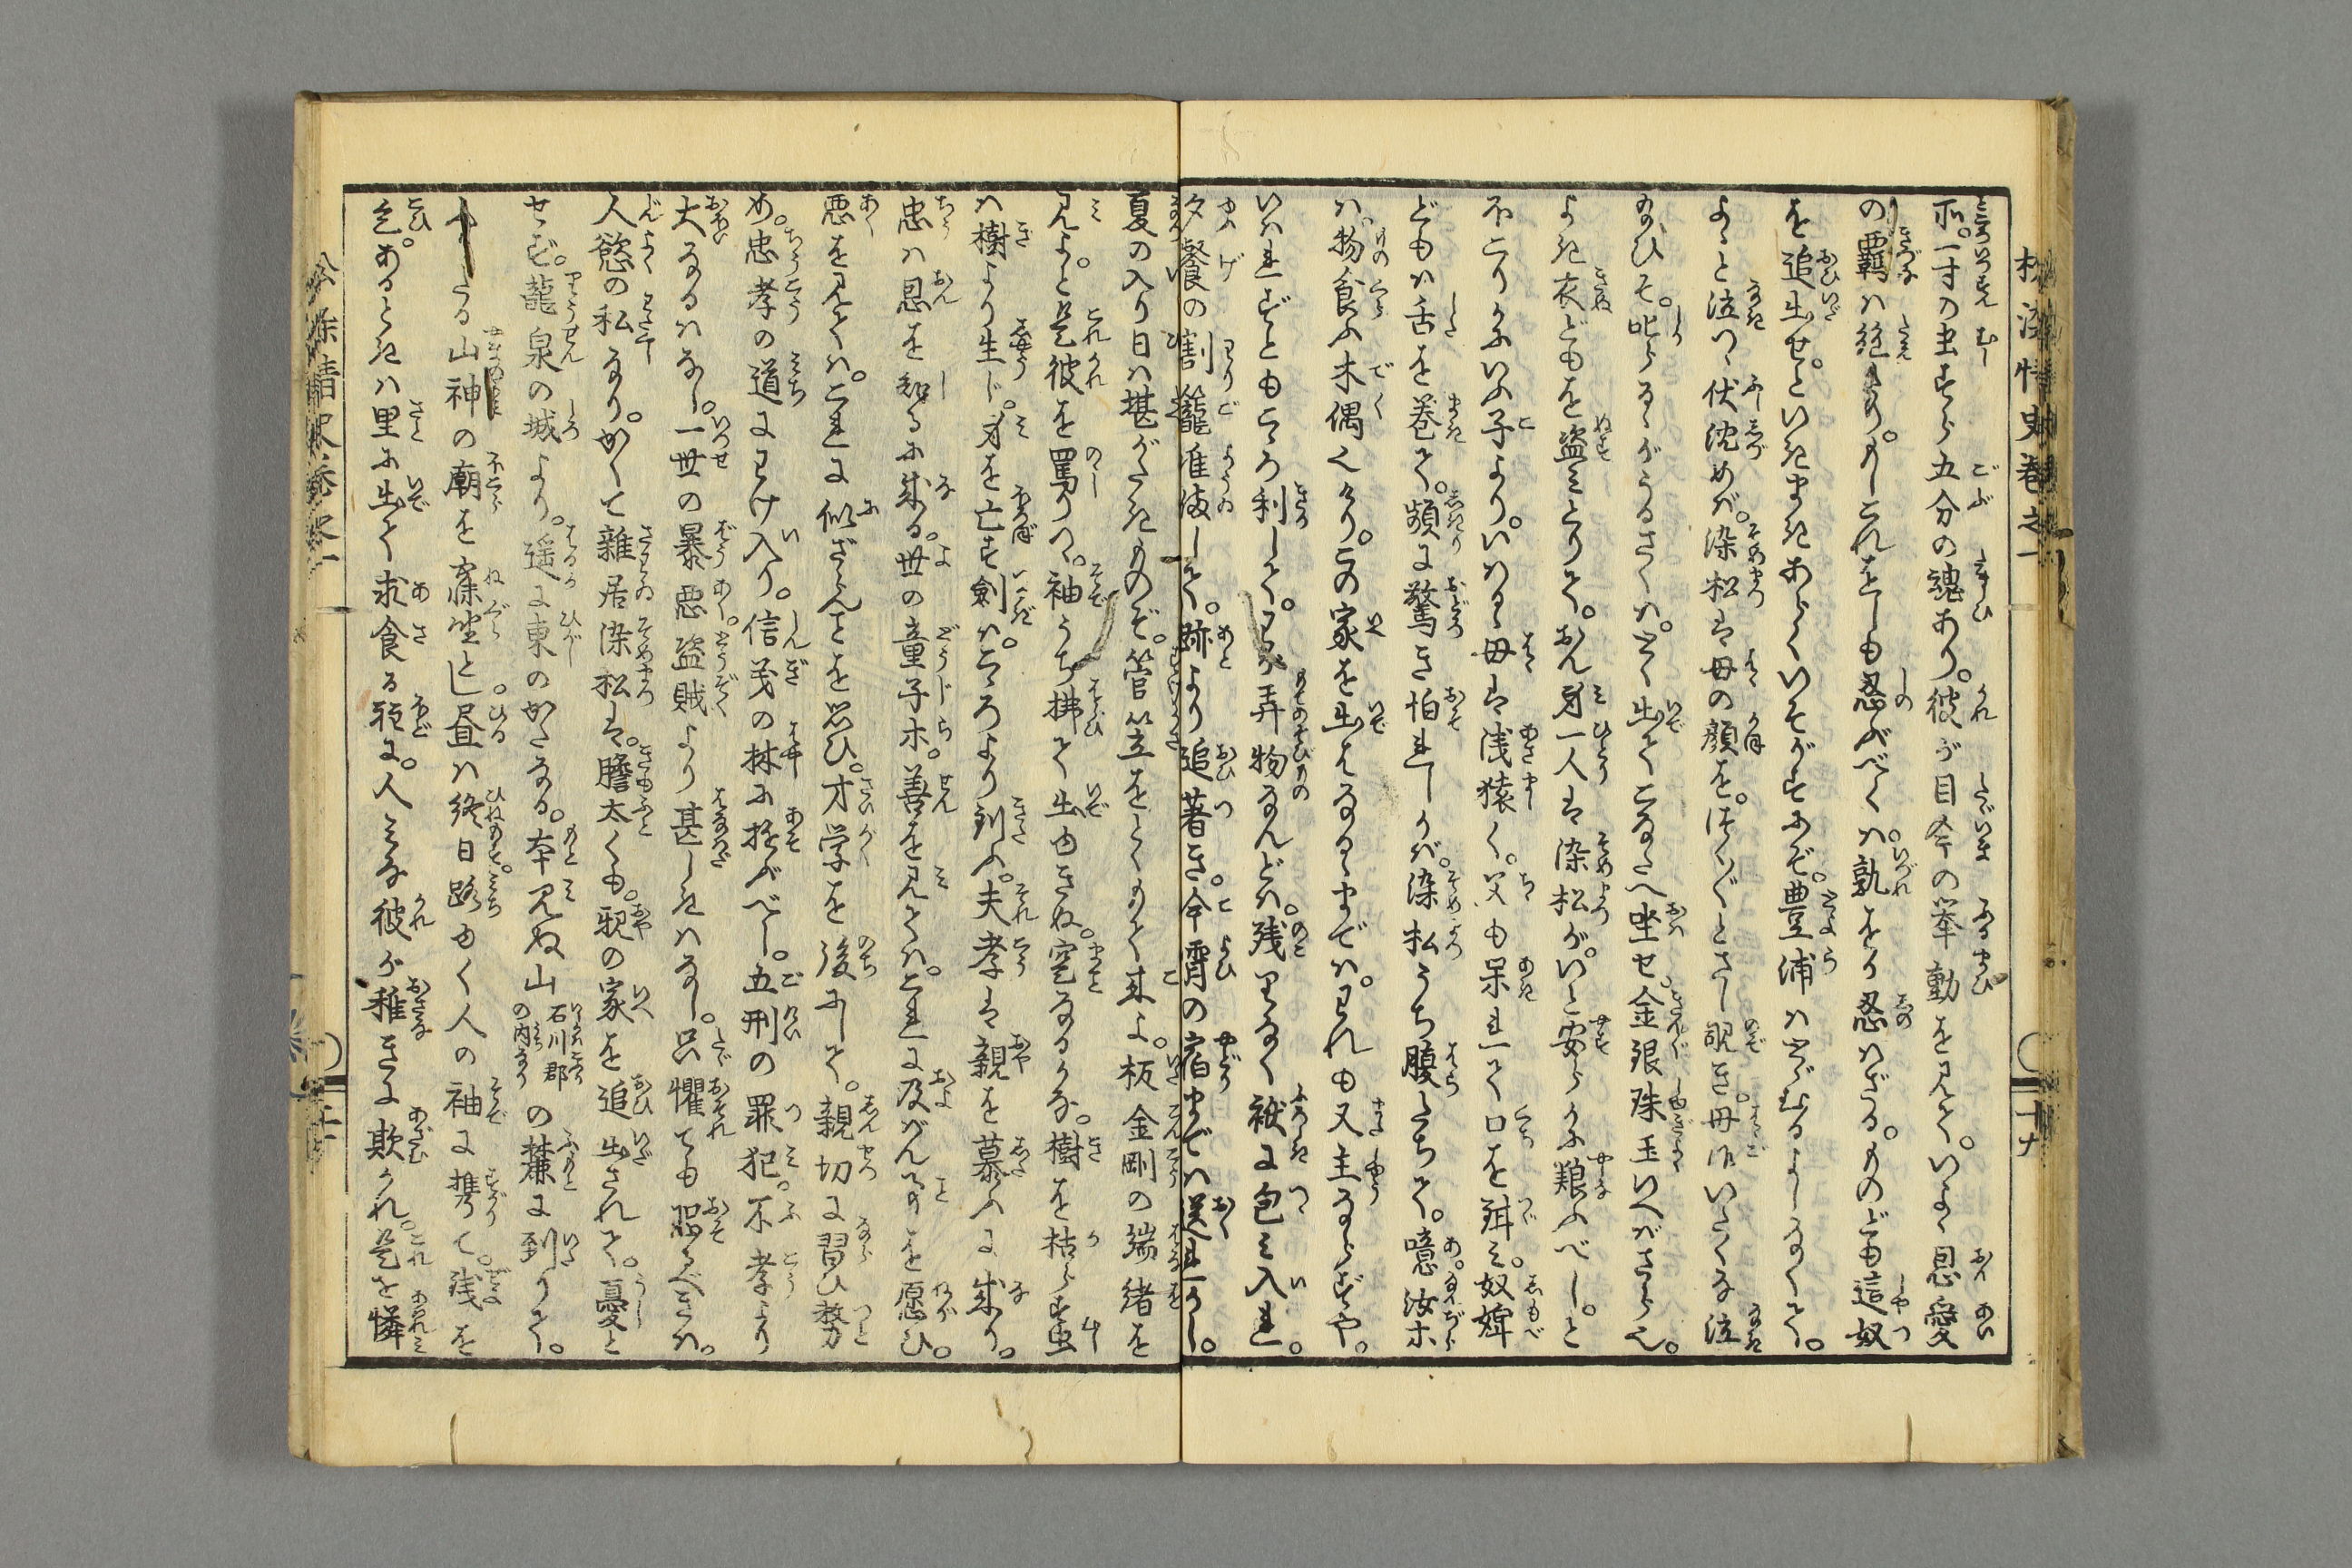 松染情史巻之一
十九
示。一寸の虫すら五分の魂あり。彼が目今の挙動を見て。いよゝ恩愛
の羈は絶たり。もしこれをしも忍ぶべくは。孰をか忍ばざる。ものども這奴
を追出せ。といきまきあらくいそがすにぞ。豊浦はとゞむるよしなくて。
よゝと泣つゝ伏沈めば。染松は母の顔を。つく〴〵とさし覗き。母御いたくな泣
給ひそ。叱らるゝがうるさくは。とく出てこなたへ坐せ。金銀珠玉いへばさら也。
よき衣どもを盗みとりて。おん身一人は染松が。いと安らかに養ふべし。と
ホこりかにいふ子より。いはるゝ母は浅猿く。父も呆れて口を鉗み。奴婢
どもは舌を巻て。頻に驚き怕れしかば。染松うち腹たちて。噫汝等
は。物食ふ木偶人なり。この家を出はなるゝまでは。われも又主ならずや。
いはれずともこゝろ利して。わが弄物なんどは。残りなく袱に包み入れ。
夕餐の割籠准備して。跡より追著き。今宵の宿までは送れかし。
夏の入り日は堪がたきものぞ。菅笠をとくもて来よ。板金剛の端緒を
見よ。と是彼を罵りつゝ。袖うち払て出ゆきぬ。寔なるかな。樹を枯らす虫
は樹より生じ。身を亡す剣は。こゝろより到ふ。夫孝は親を慕ふに成り。
忠は恩を知るに成る。世の童子等。善を見ては。これに及ばん事を愿ひ。
悪を見ては。これに似ざらんことを思ひ。才学を後にして。親切に習ひ務
め。忠孝の道にわけ入り。信義の林に遊ぶべし。五刑の罪犯。不孝より
大なるはなし。一世の暴悪盗賊より甚しきはなし。只懼ても恐るべきは。
人慾の私なり。かくて雑居染松は。膽太くも。親の家を追出されて。憂と
せず。龍泉の城より。遥に東のかたなる。本見ぬ山石川郡の内なりの麓に到りて。
たる山神の廟を寐坐とし。昼は終日路ゆく人の袖に携りて。残を
乞。あるときは里に出て求食る程に。人みな彼が稚きに欺かれ。是を憐